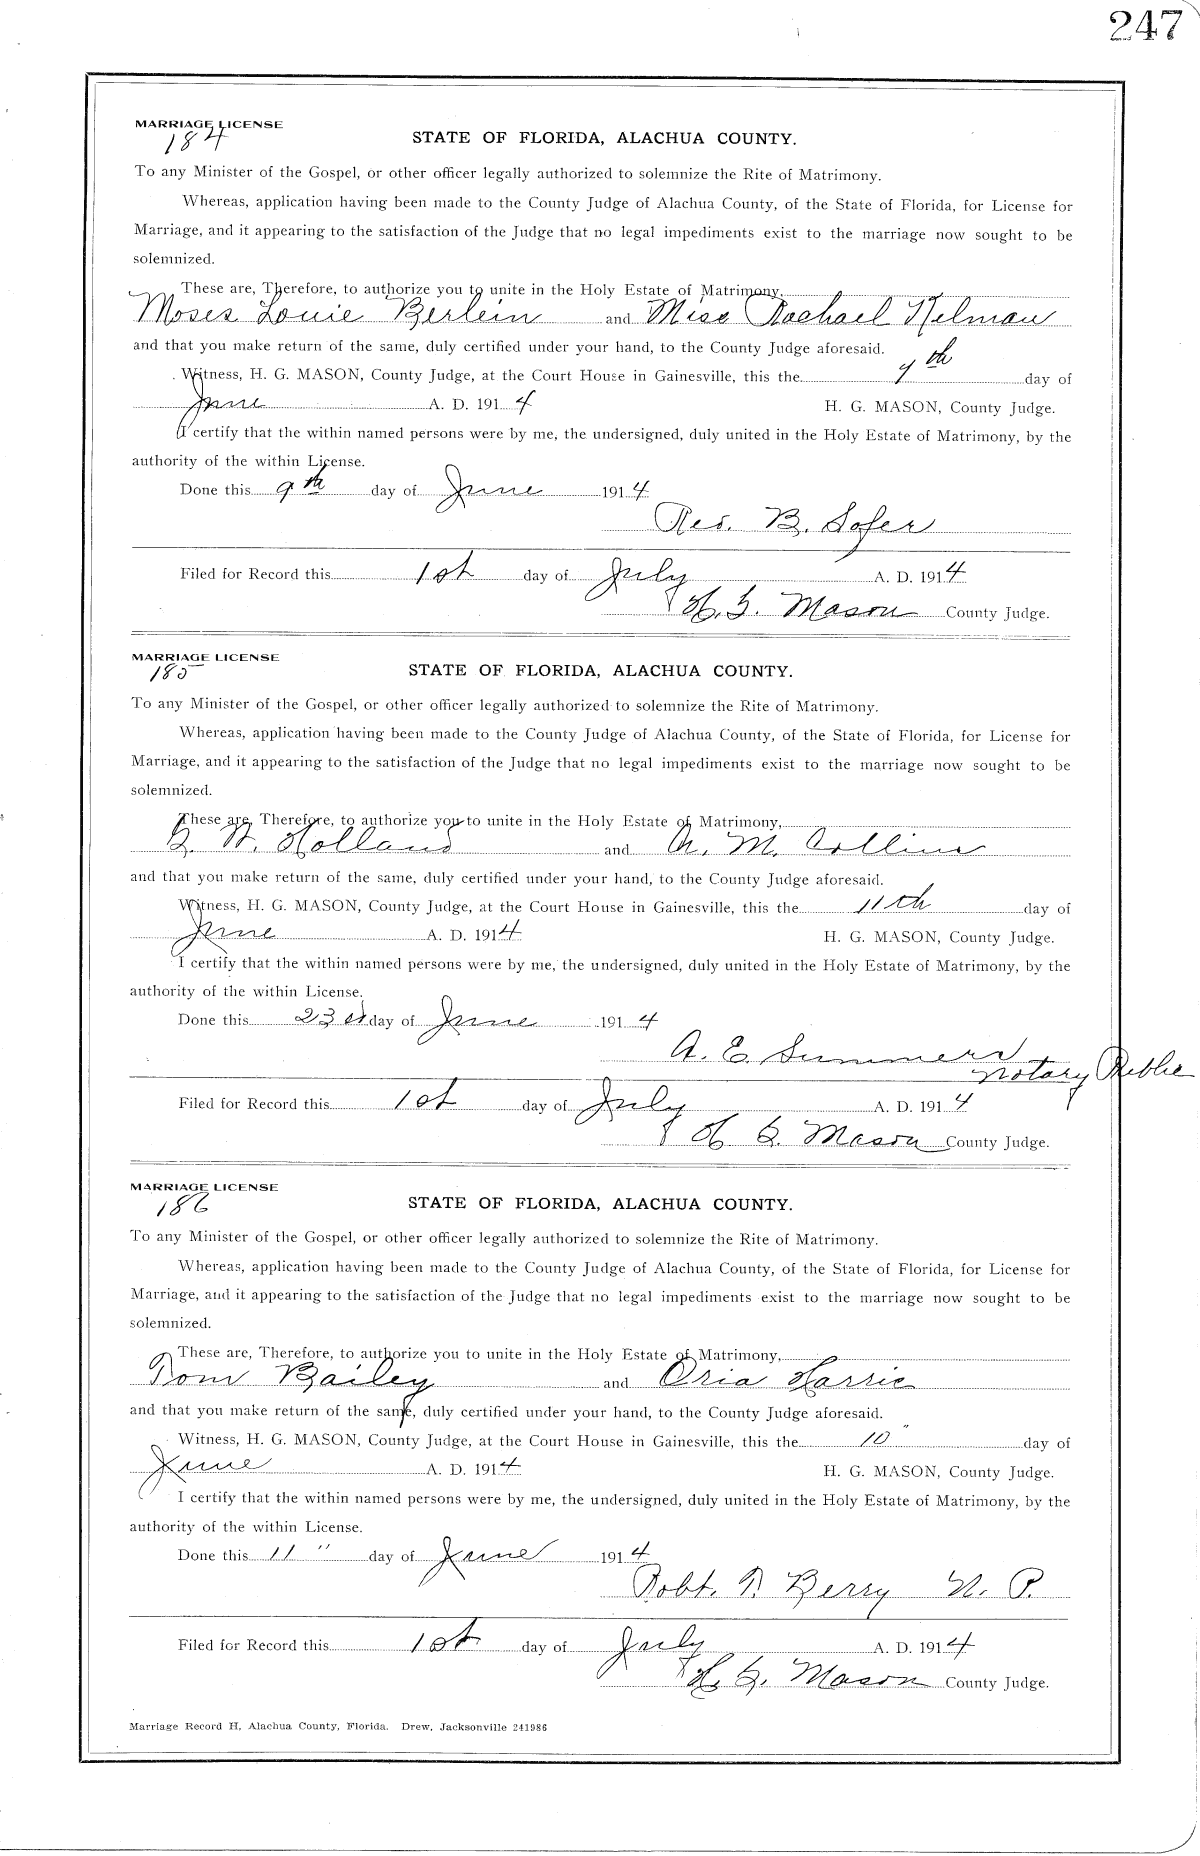 247
MARRIAGE LICENSE
184
STATE OF FLORIDA, ALACHUA COUNTY.
To any Minister of the Gospel, or other officer legally authorized to solemnize the Rite of Matrimony.
Whereas, application having been made to the County Judge of Alachua County, of the State of Florida, for License for
Marriage, and it appearing to the satisfaction of the Judge that no legal impediments exist to the marriage now sought to be
solemnized.
These are, Therefore, to authorize you to unite in the Holy Estate of Matrimony,
Moses Louie Berlein and Miss Rachael Kelman
and that you make return of the same, duly certified under your hand, to the County Judge aforesaid.
Witness, H. G. MASON, County Judge, at the Court House in Gainesville, this the 9th day of
June A. D. 1914 H. G. MASON, County Judge.
I certify that the within named persons were by me, the undersigned, duly united in the Holy Estate of Matrimony, by the
authority of the within License.
Done this 9th day of June 1914
B. Sofer
Filed for Record this 1st day of July A. D. 1914
H. G. Mason County Judge.
MARRIAGE LICENSE
185
STATE OF FLORIDA, ALACHUA COUNTY.
To any Minister of the Gospel, or other officer legally authorized to solemnize the Rite of Matrimony.
Whereas, application having been made to the County Judge of Alachua County, of the State of Florida, for License for
Marriage, and it appearing to the satisfaction of the Judge that no legal impediments exist to the marriage now sought to be
solemnized.
These are, Therefore, to authorize you to unite in the Holy Estate of Matrimony,
G. W. Holland and A. M. Collins
and that you make return of the same, duly certified under your hand, to the County Judge aforesaid.
Witness, H. G. MASON, County Judge, at the Court House in Gainesville, this the 11th day of
June A. D. 1914 H. G. MASON, County Judge.
I certify that the within named persons were by me, the undersigned, duly united in the Holy Estate of Matrimony, by the
authority of the within License.
Done this 23rd day of June 1914
A. E. Summers
Notary Public
Filed for Record this 1st day of July A. D. 1914
H. G. Mason County Judge.
MARRIAGE LICENSE
186
STATE OF FLORIDA, ALACHUA COUNTY.
To any Minister of the Gospel, or other officer legally authorized to solemnize the Rite of Matrimony.
Whereas, application having been made to the County Judge of Alachua County, of the State of Florida, for License for
Marriage, and it appearing to the satisfaction of the Judge that no legal impediments exist to the marriage now sought to be
solemnized.
These are, Therefore, to authorize you to unite in the Holy Estate of Matrimony,
Tom Bailey and Oria Harris
and that you make return of the same, duly certified under your hand, to the County Judge aforesaid.
Witness, H. G. MASON, County Judge, at the Court House in Gainesville, this the 10" day of
June A. D. 1914 H. G. MASON, County Judge.
I certify that the within named persons were by me, the undersigned, duly united in the Holy Estate of Matrimony, by the
authority of the within License.
Done this 11" day of June 1914
Robt. T. Berry N. P.
Filed for Record this 1st day of July A. D. 1914
H. G. Mason County Judge.
Marriage Record H, Alachua County, Florida. Drew, Jacksonville 241986